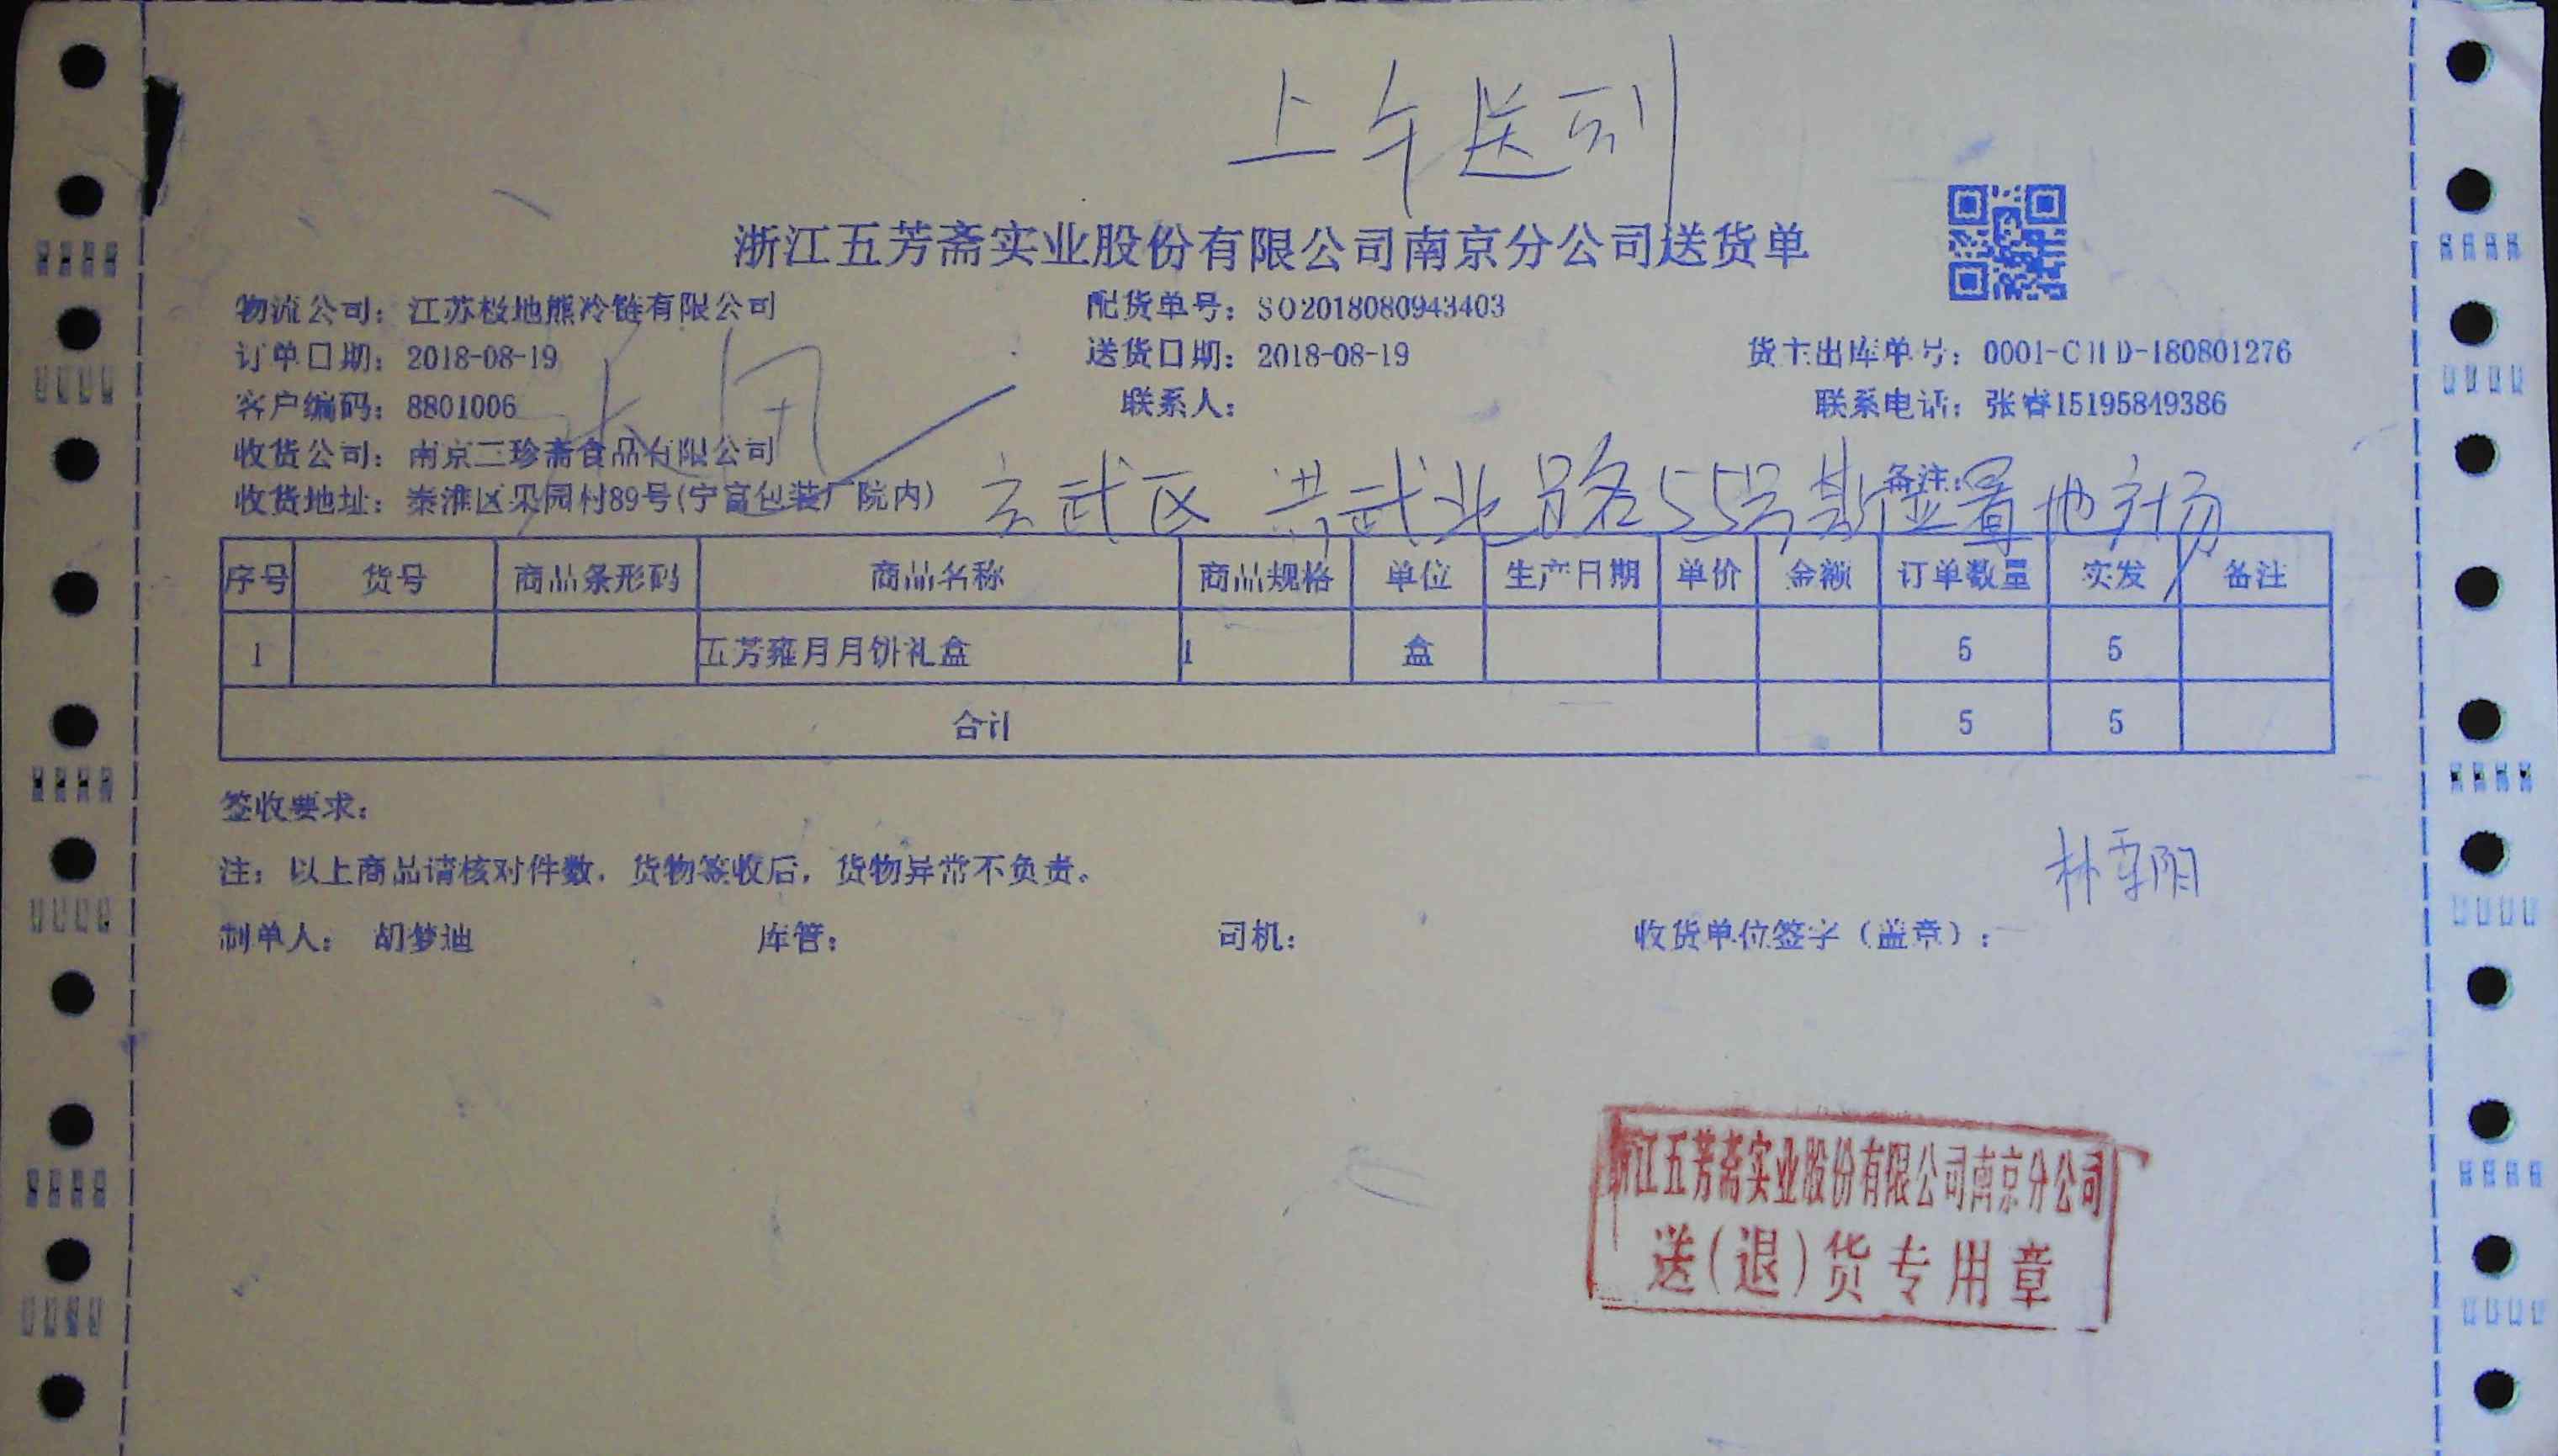 上午送到
浙江五芳斋实业股份有限公司南京分公司送货单
物流公司：江苏极地熊冷链有限公司 配货单号：SO2018080943403
订单日期：2018-08-19 送货日期：2018-08-19 货主出库单号：0001-CHD-180801276
客户编码：8801006 联系人： 联系电话：张睿15195849386
收货公司：南京三珍斋食品有限公司 备注：
收货地址：秦淮区果园村89号(宁富包装厂院内) 玄武区 洪武北路55号
序号 货号 商品条形码 商品名称 商品规格 单位 生产日期 单价 金额 订单数量 实发 备注
1 五芳雍月月饼礼盒 1 盒 5 5
合计 5 5
签收要求：
注：以上商品请核对件数，货物签收后，货物异常不负责。
制单人：胡梦迪 库管： 司机： 收货单位签字（盖章）：
浙江五芳斋实业股份有限公司南京分公司
送(退)货专用章